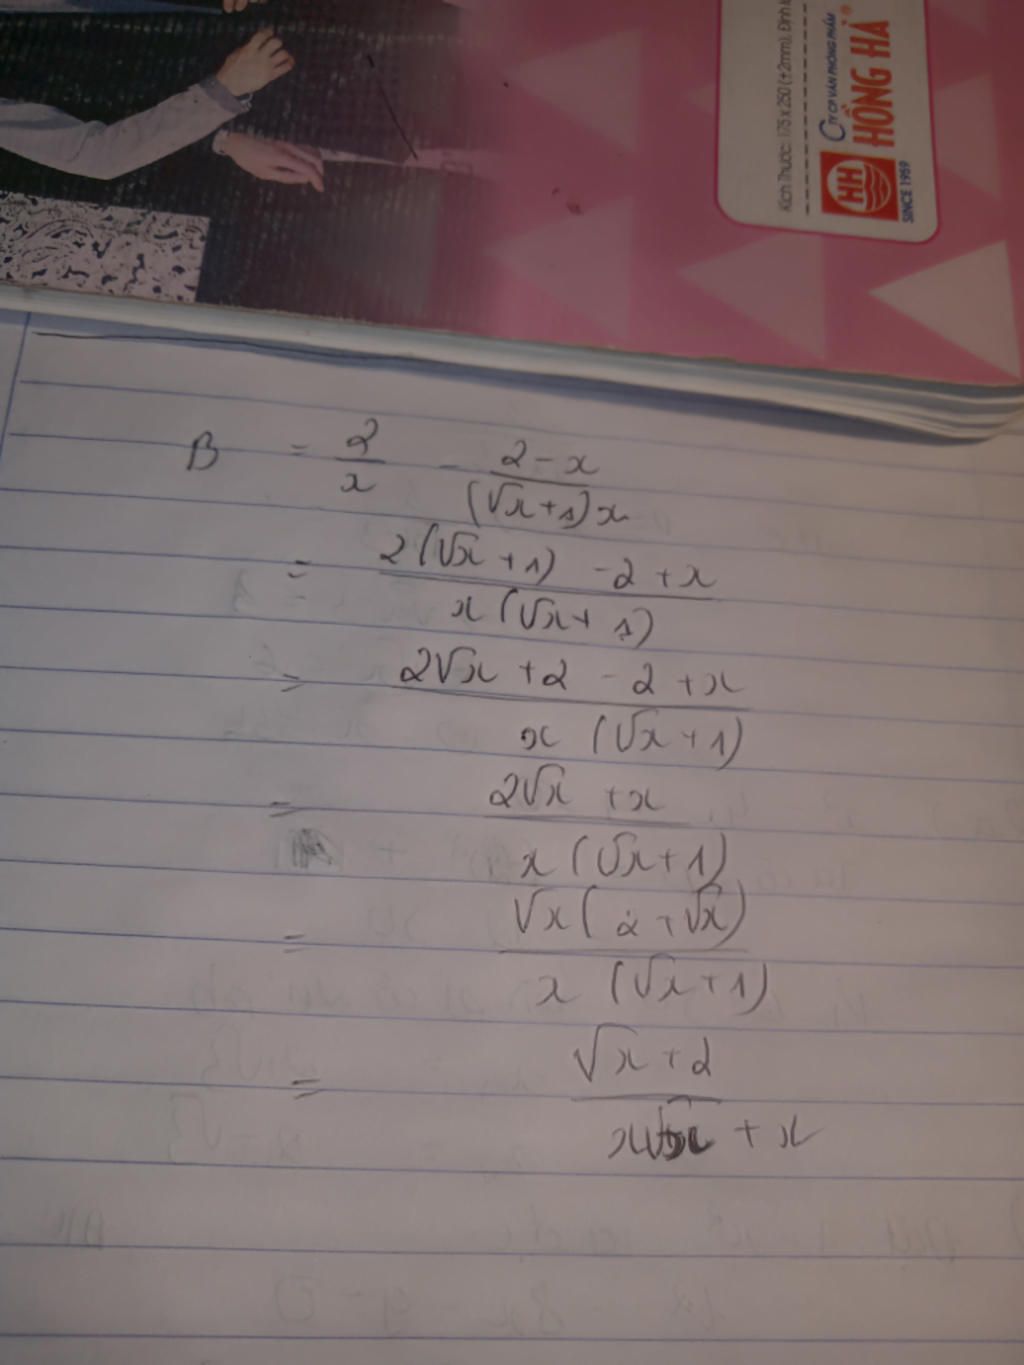 Kích thước: 175 x 250 (±2mm), Định
CTY CP VĂN PHÒNG PHẨM
HỒNG HÀ
HH
SINCE 1959
B = 2/x - (2 - x)/((√x + 1)x)
= (2(√x + 1) - 2 + x)/(x(√x + 1))
= (2√x + 2 - 2 + x)/(x(√x + 1))
= (2√x + x)/(x(√x + 1))
= (√x(2 + √x))/(x(√x + 1))
= (√x + 2)/(x√x + x)